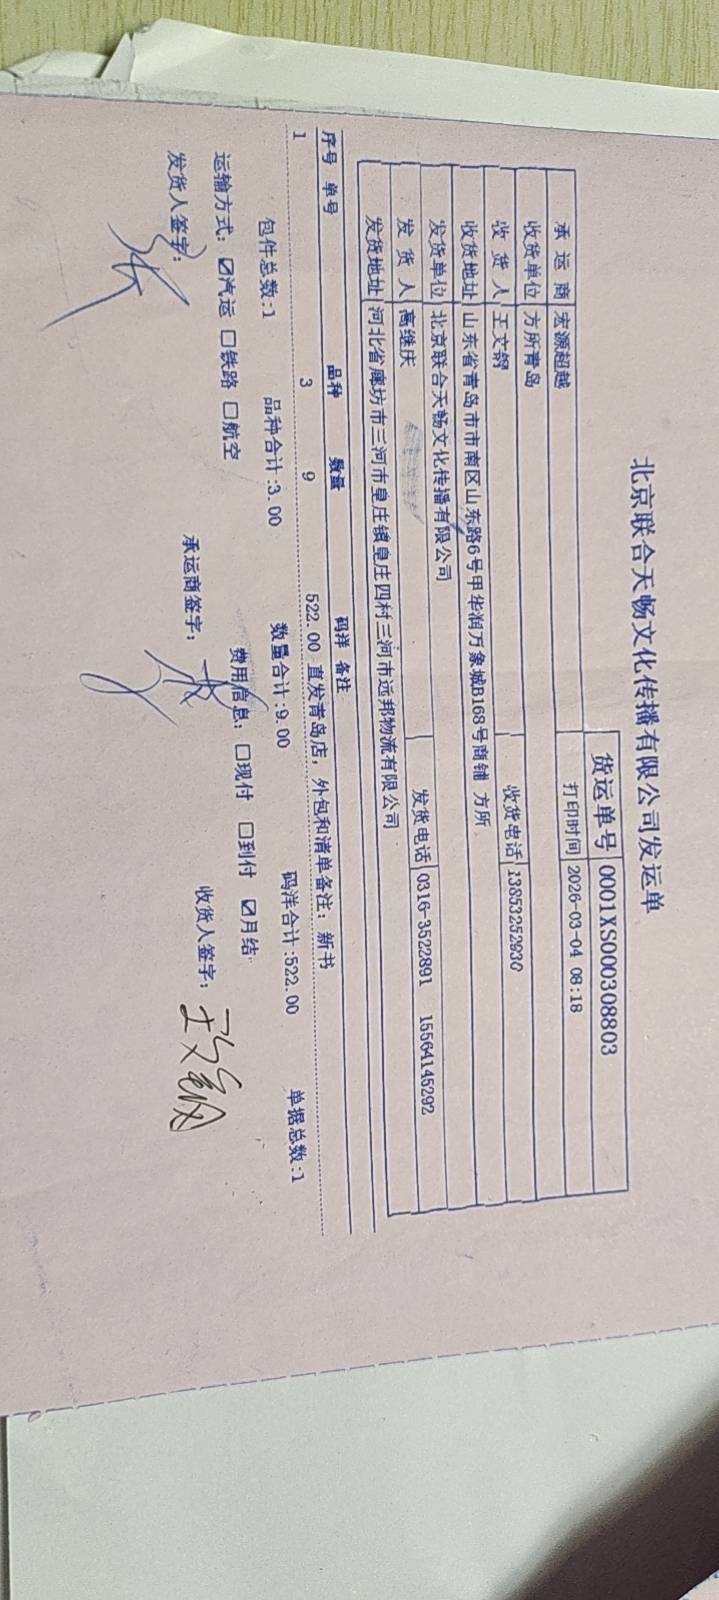 北京联合天畅文化传播有限公司发运单
货运单号 0001XS000308803
承运商 宏源超越 打印时间 2026-03-04 08:18
收货单位 方所青岛
收货人 王文钢 收货电话 13853252930
收货地址 山东省青岛市市南区山东路6号甲华润万象城B168号商铺 方所
发货单位 北京联合天畅文化传播有限公司
发货人 高继庆 发货电话 0316-3522891 15564145292
发货地址 河北省廊坊市三河市皇庄镇皇庄四村三河市远邦物流有限公司
序号 单号 品种 数量 码洋 备注
1 3 9 522.00 直发青岛店，外包和清单备注：新书
包件总数:1 品种合计:3.00 数量合计:9.00 码洋合计:522.00 单据总数:1
运输方式：☑汽运 □铁路 □航空 费用信息：□现付 □到付 ☑月结
发货人签字： 承运商签字： 收货人签字：王文钢